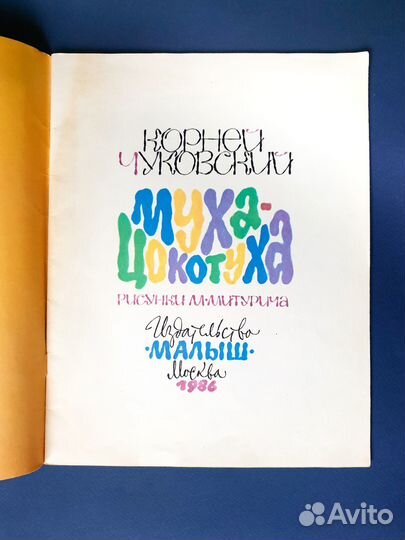 КОРНЕЙ
ЧУКОВСКИЙ
МУХА-
ЦОКОТУХА
РИСУНКИ М.МИТУРИЧА
Издательство
·МАЛЫШ·
Москва
1986
Avito